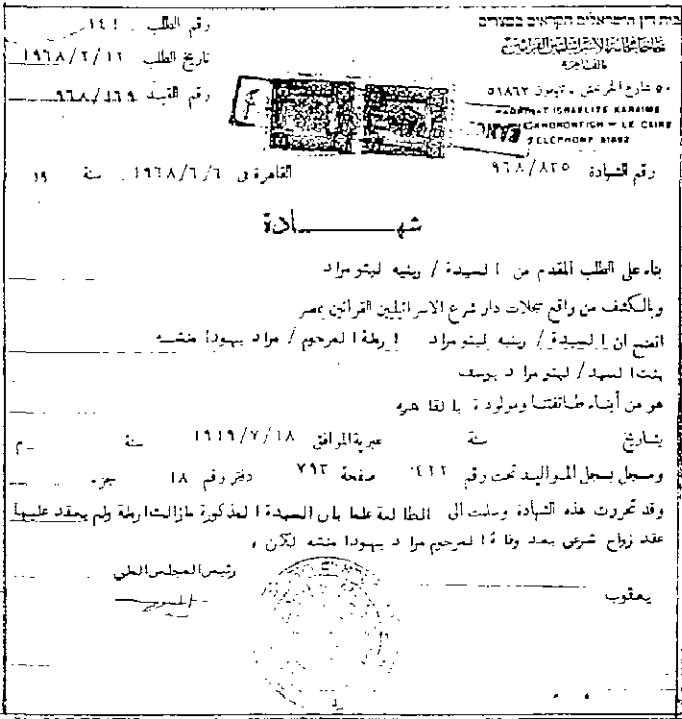 בית דין הישראלים הקראים במצרים
بالقاهرة
٥٠ شارع الخرنفش - تليفون ٥١٨٦٢
ISRAELITE KARAIME
KHORONFICH - LE CAIRE
TELEPHONE 51862
رقم الطلب ١٤١
تاريخ الطلب ١٩٦٨/٢/١٢
رقم القيد ٩٦٨/١٦٩
رقم الشهادة ٩٦٨/٨٢٥
القاهرة فى ١٩٦٨/٦/٦ سنة ١٩
شهـــــادة
بناء على الطلب المقدم من السيدة / رينيه ليتو مراد
وبالكشف من واقع سجلات دار شرع الاسرائيليين القرائين بمصر
اتضح ان السيدة / رينيه ليتو مراد ارملة المرحوم / مراد يهودا منشه
بنت السيد / ليتو مراد يوسف
هو من أبناء طائفتنا ومولودة بالقاهره
بتاريخ سنة عبرية الموافق ١٩١٩/٧/١٨ سنة م
ومسجل بسجل المواليد تحت رقم ٤٢٢ صفحة ٧٩٢ دفتر رقم ١٨ جزء
وقد تحررت هذه الشهادة وسلمت الى الطالبة علما بان السيدة المذكورة مازالت ارملة ولم يعقد عليها
عقد زواج شرعى بعد وفاة المرحوم مراد يهودا منشه
رئيس المجلس الملى
يعقوب